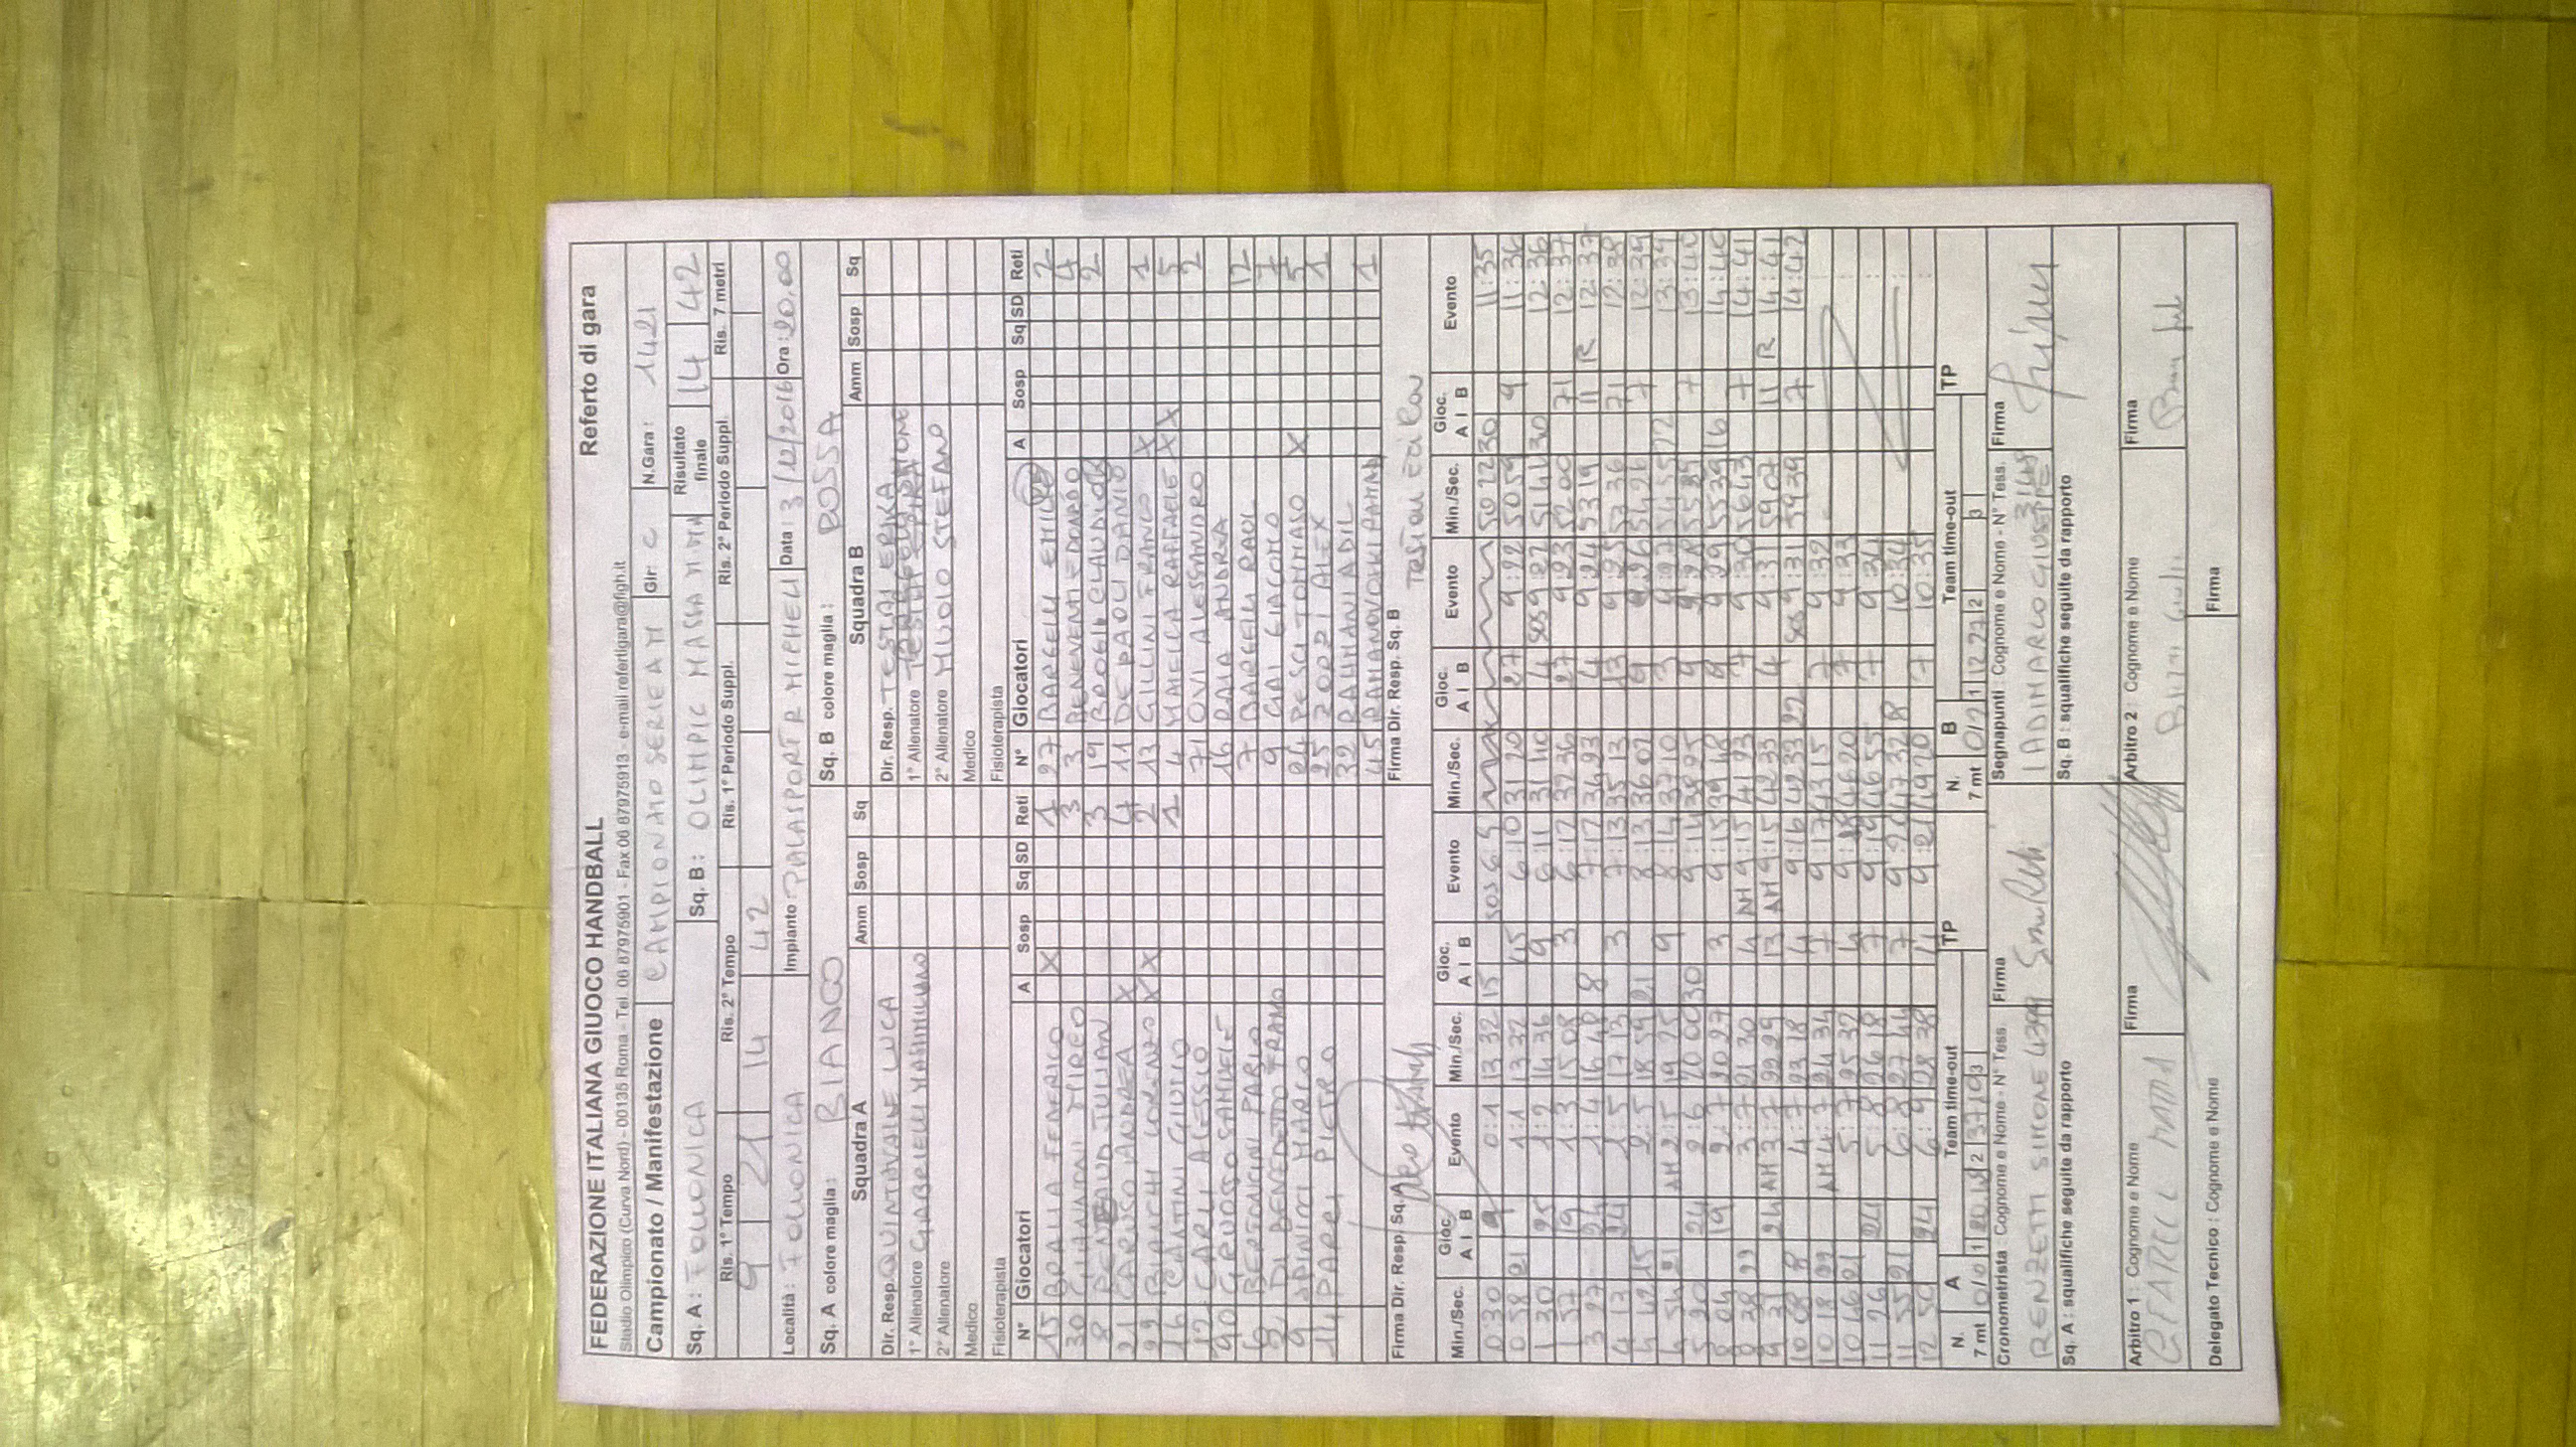 FEDERAZIONE ITALIANA GIUOCO HANDBALL Referto di gara
Stadio Olimpico (Curva Nord) - 00135 Roma - Tel. 06 87975901 - Fax 06 87975913 - e-mail refertigara@figh.it
Campionato / Manifestazione CAMPIONATO SERIE A M Gir: C N.Gara: 1421
Sq. A: FOLLONICA Sq. B: OLIMPIC MASSA MMA Risultato finale 14 42
Ris. 1° Tempo Ris. 2° Tempo Ris. 1° Periodo Suppl. Ris. 2° Periodo Suppl. Ris. 7 metri
9 21 14 42
Località: FOLLONICA Impianto PALASPORT R MICHELI Data: 3/12/2016 Ora: 20,00
Sq. A colore maglia: BIANCO Sq. B colore maglia: ROSSA
Squadra A Amm Sosp Sq Squadra B Amm Sosp Sq
Dir. Resp. QUINTAVALLE LUCA Dir. Resp. TESTAI ERIKA
1° Allenatore GABRIELLI MASSIMILIANO 1° Allenatore
2° Allenatore 2° Allenatore MUOIO STEFANO
Medico Medico
Fisioterapista Fisioterapista
N° Giocatori A Sosp Sq SD Reti N° Giocatori A Sosp Sq SD Reti
15 BRALIA FEDERICO X 1 27 BARGELLI EMILIO 2
30 3 3 BENEVENTI EDOARDO 4
8 JULIAN 3 19 CLAUDIO 2
21 CARUSO ANDREA X 4 11 DE PAOLI DANILO
22 BIANCHI LORENZO X X 2 13 GILLINI FRANCO X 1
16 SANTINI GIULIO 1 4 MAELLA RAFFAELE X X 5
12 CARLI ALESSIO 71 OVI ALESSANDRO 2
90 GERUOSSO SAMUELE 16 RAIA ANDREA
BERTONCINI PARIO 7 BARGELLI RAOL 12
DI BENEDETTO 9 GAI GIACOMO 7
9 SPINICCI MARCO 24 PESCI TOMMASO X 5
14 PARRI PIETRO 25 ZORPI ALEX 1
32 RAHMANI ADIL
45 1
Firma Dir. Resp. Sq. A Firma Dir. Resp. Sq. B
Min./Sec. Gioc. A | B Evento Min./Sec. Gioc. A | B Evento Min./Sec. Gioc. A | B Evento Min./Sec. Gioc. A | B Evento
0 30 9 0:1 13 32 15 SOS 50 22 30 11:35
0 58 21 1:1 13 32 45 6:10 31 20 27 9:22 50 59 9 11:36
1 30 25 1:2 14 36 9 6:11 31 40 4 SOS 9:22 51 41 30 12:36
1 57 19 1:3 15 08 3 6:12 32 36 27 9:23 52 00 71 12:37
3 27 24 1:4 16 48 8 7:12 34 23 4 9:24 53 19 11 R 12:37
4 13 24 1:5 17 13 3 7:13 35 13 13 9:25 71 12:38
4 42 15 2:5 18 59 21 8:13 36 02 9 9:26 54 26 7 12:39
21 AM 2:5 19 25 9 8:14 37 10 3 9:27 54 55 22 13:39
5 20 24 2:6 20 00 30 9:14 9 9:28 7 13:40
8 04 19 2:7 20 27 3 9:15 39 48 9 9:29 55 39 16 14:40
8 38 22 3:7 21 30 4 AM 9:15 41 23 7 9:30 56 43 7 14:41
9 31 24 AM 3:7 22 29 13 AM 9:15 42 33 4 9:31 59 07 11 R 14:41
10 08 8 4:7 23 18 4 9:16 42 33 22 SOS 9:31 59 39 7 14:42
10 18 22 AM 4:7 24 34 7 9:17 43 15 7 9:32
10 46 21 5:7 25 32 4 9:18 46 20 7 9:33
11 26 24 5:8 26 18 7 9:19 46 55 7 9:34
11 55 21 6:8 27 44 7 9:20 47 32 8 10:34
12 50 24 6:9 28 38 4 9:21 49 20 7 10:35
N. 7 mt A Team time-out TP N. 7 mt B Team time-out TP
0/0 1 2 3 0/2 1 12 27 2 3
Cronometrista Cognome e Nome - N° Tess. Firma Segnapunti Cognome e Nome - N° Tess. Firma
RENZETTI SIMONE 4399 LADIMARLO GIUSEPPE 3148
Sq. A : squalifiche seguite da rapporto Sq. B : squalifiche seguite da rapporto
Arbitro 1 : Cognome e Nome Firma Arbitro 2 : Cognome e Nome Firma
Delegato Tecnico : Cognome e Nome Firma